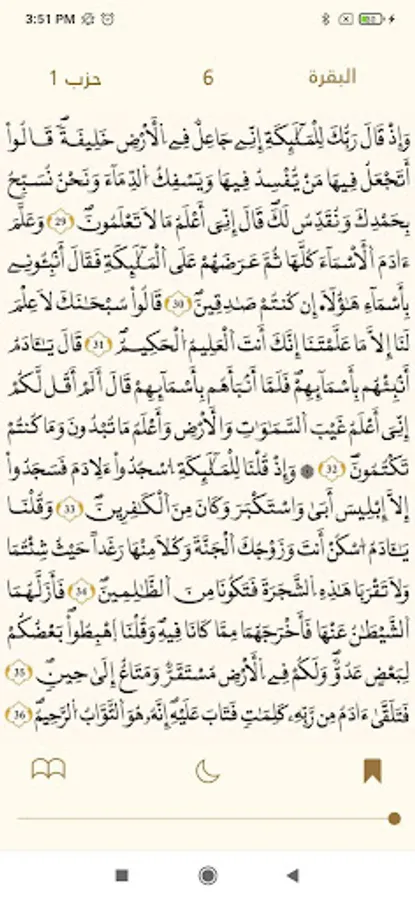 3:51 PM
البقرة 6 حزب 1
وَإِذْ قَالَ رَبُّكَ لِلْمَلَٰٓئِكَةِ إِنِّے جَاعِلٞ فِے اِ۬لْأَرْضِ خَلِيفَةٗۖ قَالُوٓاْ
أَتَجْعَلُ فِيهَا مَنْ يُّفْسِدُ فِيهَا وَيَسْفِكُ اُ۬لدِّمَآءَ وَنَحْنُ نُسَبِّحُ
بِحَمْدِكَ وَنُقَدِّسُ لَكَۖ قَالَ إِنِّيَ أَعْلَمُ مَا لَا تَعْلَمُونَۖ 29 وَعَلَّمَ
ءَادَمَ اَ۬لْأَسْمَآءَ كُلَّهَا ثُمَّ عَرَضَهُمْ عَلَى اَ۬لْمَلَٰٓئِكَةِ فَقَالَ أَنۢبِـُٔونِے
بِأَسْمَآءِ هَٰٓؤُلَآءِ ان كُنتُمْ صَٰدِقِينَۖ 30 قَالُواْ سُبْحَٰنَكَ لَا عِلْمَ
لَنَآ إِلَّا مَا عَلَّمْتَنَآ إِنَّكَ أَنتَ اَ۬لْعَلِيمُ اُ۬لْحَكِيمُۖ 31 قَالَ يَٰٓـَٔادَمُ
أَنۢبِئْهُم بِأَسْمَآئِهِمْۖ فَلَمَّآ أَنۢبَأَهُم بِأَسْمَآئِهِمْ قَالَ أَلَمَ اَقُل لَّكُمُۥٓ
إِنِّيَ أَعْلَمُ غَيْبَ اَ۬لسَّمَٰوَٰتِ وَالْأَرْضِ وَأَعْلَمُ مَا تُبْدُونَ وَمَا كُنتُمْ
تَكْتُمُونَۖ 32 ۞ وَإِذْ قُلْنَا لِلْمَلَٰٓئِكَةِ اِ۟سْجُدُواْ لِأٓدَمَ فَسَجَدُوٓاْ
إِلَّآ إِبْلِيسَ أَب۪يٰ وَاسْتَكْبَرَ وَكَانَ مِنَ اَ۬لْكٰ۪فِرِينَۖ 33 وَقُلْنَا
يَٰٓـَٔادَمُ اُ۟سْكُنَ اَنتَ وَزَوْجُكَ اَ۬لْجَنَّةَ وَكُلَا مِنْهَا رَغَداً حَيْثُ شِئْتُمَا
وَلَا تَقْرَبَا هَٰذِهِ اِ۬لشَّجَرَةَ فَتَكُونَا مِنَ اَ۬لظَّٰلِمِينَۖ 34 فَأَزَلَّهُمَا
اَ۬لشَّيْطَٰنُ عَنْهَا فَأَخْرَجَهُمَا مِمَّا كَانَا فِيهِۖ وَقُلْنَا اَ۪هْبِطُواْ بَعْضُكُمْ
لِبَعْضٍ عَدُوّٞۖ وَلَكُمْ فِے اِ۬لْأَرْضِ مُسْتَقَرّٞ وَمَتَٰعٌ إِلَىٰ حِينٖۖ 35
فَتَلَقّ۪يٰٓ ءَادَمُ مِن رَّبِّهِۦ كَلِمَٰتٖ فَتَابَ عَلَيْهِۖ إِنَّهُۥ هُوَ اَ۬لتَّوَّابُ اُ۬لرَّحِيمُۖ 36